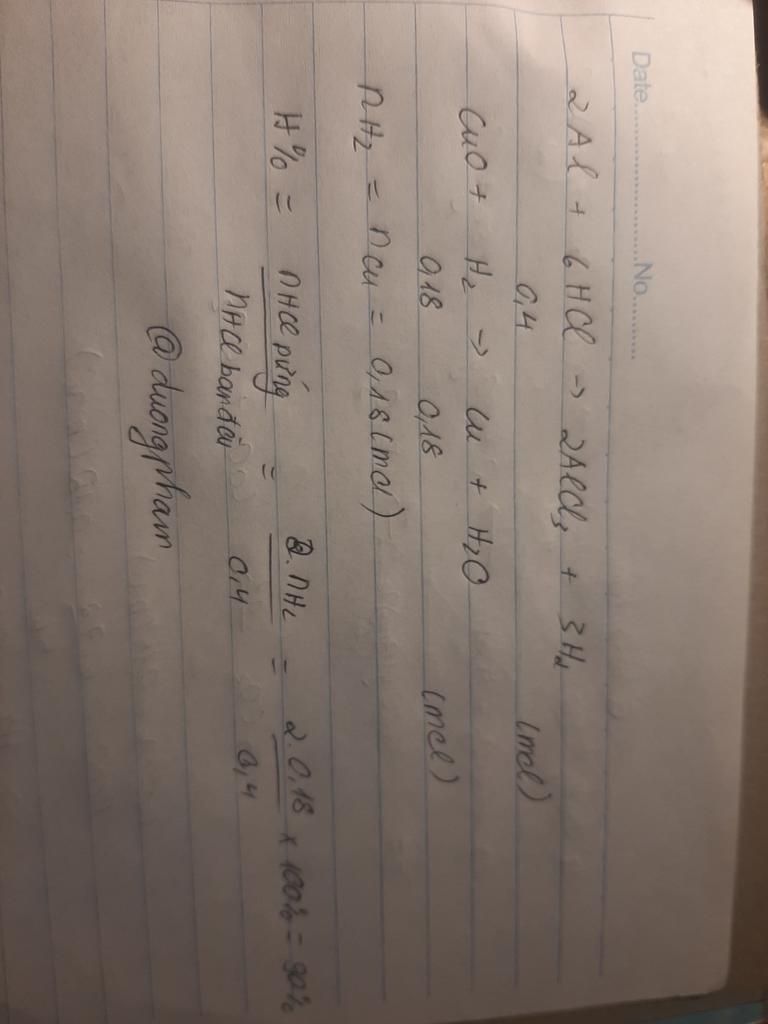 Date.....................No..........
2Al + 6HCl → 2AlCl3 + 3H2
0,4 (mol)
CuO + H2 → Cu + H2O
0,18 0,18 (mol)
nH2 = nCu = 0,18 (mol)
H% = nHCl pứng / nHCl ban đầu = 2.nH2 / 0,4 = 2.0,18 / 0,4 x 100% = 90%
@duongpham